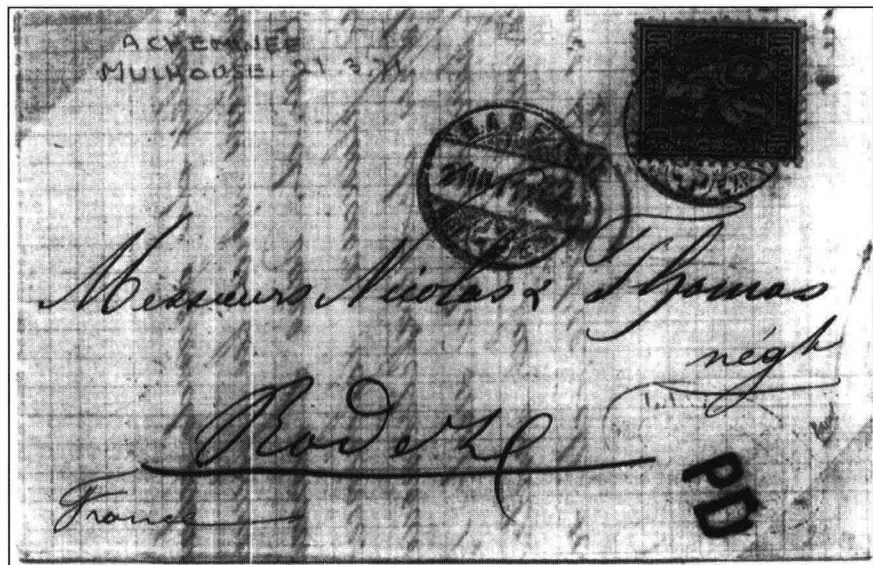 ACHEMINEE
MULHOUSE 21.3.71
30 30
BASEL
30 30
Messieurs Nicolas & Thomas
négts
Rodez
France
PD